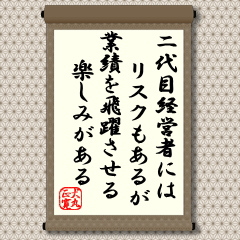 二代目経営者には
リスクもあるが
業績を飛躍させる
楽しみがある